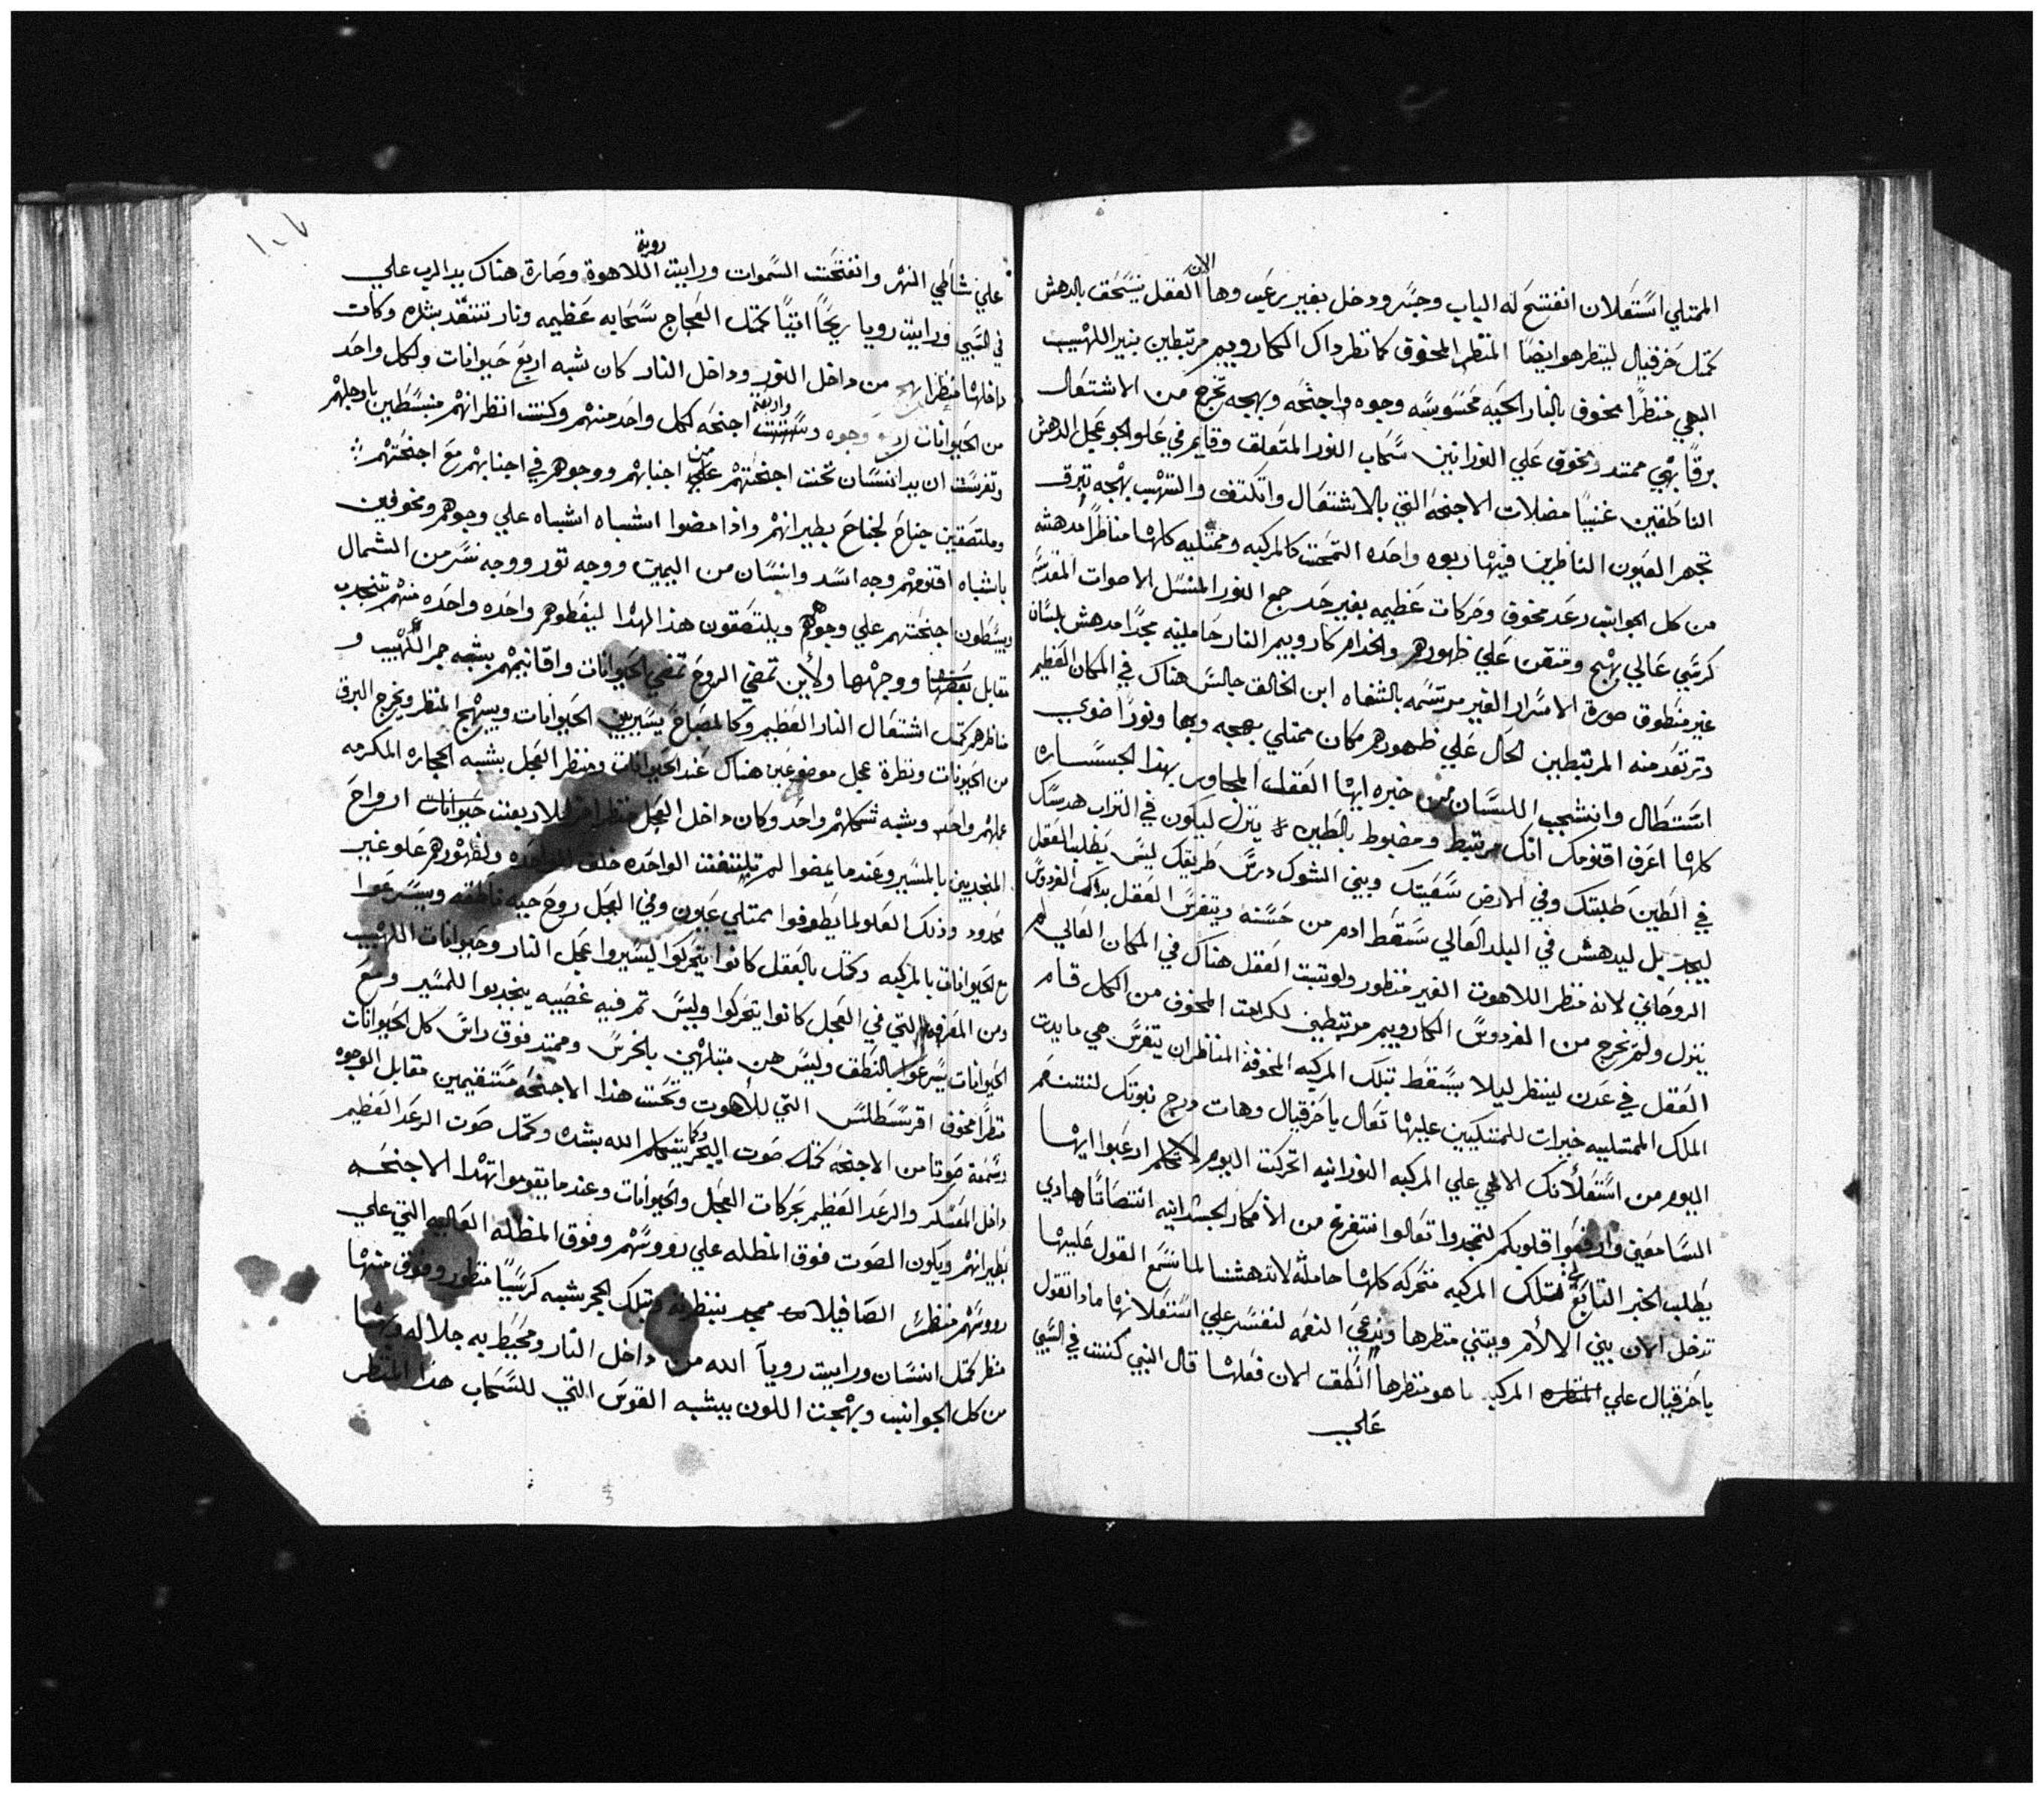 الممتلي استعلان انفتح له الباب وجسر ودخل بغير رعب وها الان العقل يستحق بالدهش
كمتل حزقيال لينظر هو ايضا المنظر المخوف كما نظر داك الكاروبيم مرتبطين بنير اللهيب
البهي منظرا مخوف بالنار الحيه محسوسه وجوه واجنحه وبهجه تخرج من الاشتعال
برقا بهي ممتد ومخوف علي النورانيين سحاب النور المتعلق وقايم في علو الجو عجل الدهش
الناطقين غنيا مضلات الاجنحه التي بالاشتعال واتكتف والتهب بهجه تبرق
تجهر العيون الناظرين فيها ربوه واحده التمحت كالمركبه وممتليه كلها مناظرا مدهشه
من كل الجوانب رعد مخوف وحركات عظيمه بغير حد رجع النور المنسل الاصوات المقدسه
كرسي عالي بهج ومتقن علي ظهورهم والخدام كاروبيم النار حاملينه مجدا مدهش بلسان
غير منطوق صورة الاسرار الغير مرتسمه بالشفاه ابن الخالق جالس هناك في المكان العظيم
وترتعد منه المرتبطين الحال علي ظهورهم مكان ممتلي بهجه وبها ونورا ضوي
استطال وانشجب اللسان من خبره ايها العقل المجاوب بهذا الجساره
كلها اعرف اقنومك انك مرتبط ومضبوط بالطين ينزل ليكون في التراب هدسك
في الطين طلبتك وفي الارض سعيتك وبيني الشوك درس طريقك ليس يطلب العقل
ليجد بل ليدهش في البلد العالي سقط ادم من حسنه ويتفرس العقل بداك الفردوس
الروحاني لانه منظر اللاهوت الغير منظور ولو تبت العقل هناك في المكان العالي لم
ينزل ولم يخرج من الفردوس الكاروبيم مرتبطين لكرامت المخوف من الكل قام
العقل في عدن لينظر ليلا يسقط تبلك المركبه المخوفة المناظر ان يتفرس هي ما بدت
الملك الممتليه خيرات للمتنليين عليها تعال يا حزقيال وهات درج نبوتك لنتنعم
اليوم من استعلانك الالاهي علي المركبه النورانيه اتحركت اليوم لاتكلم ارعبوا ايها
السامعين وارفعوا قلوبكم لتمجدوا تعالوا نتفرغ من الافكار الجسدانيه انتصاتا هادي
يطلب الخبر التابع لتلك المركبه متحركه كلها حامله لاندهشنا لما نسمع القول عليها
تدخل الان بيني الالام وبتني منظرها وندعي النعمه لنفسر علي استعلانها مادا تقول
يا حزقيال علي المنظره المركبه ما هو منظرها انطق الان فعلها قال النبي كنت في السبي
علي
١٠٧
علي شاطي النهر وانفتحت السموات ورايت روية اللاهوة وصارة هناك يد الرب علي
في السبي ورايت رويا ريحا اتيا كمتل العجاج سحابه عظيمه ونار تتقد بشده وكان
داخلها منظرا بهج من داخل النور وداخل النار كان شبه اربع حيوانات ولكل واحد
من الحيوانات اربع وجوه وستت واربعة اجنحه لكل واحد منهم وكنت انظر انهم منبسطين بارجلهم
وتفرست ان يد انسان تحت اجنحتهم علي من اجنابهم ووجوهم في اجنابهم مع اجنحتهم
وملتصقين جناح لجناح بطيرانهم واذا مضوا اشباه اشباه علي وجوهم ومخوفين
باشباه اقنومهم وجه اسد وانسان من اليمين ووجه تور ووجه نسر من الشمال
ويبسطون اجنحتهم علي وجوههم ويلتصقون هذا لهذا ليغطوهم واحده واحده منهم تنجدب
مقابل بعضها ووجهها ولاين تمضي الروح تمضي الحيوانات واقانيمهم بشبه جمر اللهيب و
مناظرهم كمتل اشتعال النار العظيم وكالمصباح يسير بين الحيوانات ويبهج المنظر ويخرج البرق
من الحيونات ونظرة عجل موضوعين هناك عند الحيوانات ومنظر العجل بشبه الحجاره المكرمه
عملهم واحد وشبه شكلهم واحد وكان داخل العجل منظر اخر للاربعت حيوانات ارواح
المنجدبين بالمسير وعندما يمضوا لم تلتفت الواحده خلف الواحده ولظهورهم علو غير
محدود وذلك العلو لما يطوفوا ممتلي عيون وفي العجل روح حيه ناطقه ويسرعوا
مع الحيوانات بالمركبه وكتل بالعقل كانوا يتحركوا ليسيروا عجل النار وحيوانات اللهيب
ومن المعرفه التي في العجل كانوا يتحركوا وليس تم فيه غصيبه ينجدبوا للمسير ومع
الحيوانات يسرعوا بالنطق وليس هن مبتلهين بالخرس وممتد فوق راس كل الحيوانات
منظرا مخوف اقرسطلس التي للاهوت وتحت هذا الاجنحه مستقيمين مقابل الوجوه
وسمعة صوتا من الاجنحه كتل صوت البحر وكما يتكلم الله بشده وكمتل صوت الرعد العظيم
داخل المعسكر والرعد العظيم بحركات العجل والحيوانات وعندما يقوموا تهدا الاجنحه
بطيرانهم ويكون الصوت فوق المظله علي رووسهم وفوق المظله العاليه التي علي
رووسهم منظر الصافيلا مجد ينظرنه وتبلك الحجر شبه كرسيا منظور وفوق منها
منظر كمتل انسان ورايت رويا الله من داخل النار ومحيط به جلاله وبها
من كل الجوانب وبهجت اللون بيشبه القوس التي للسحاب هدا المنظر